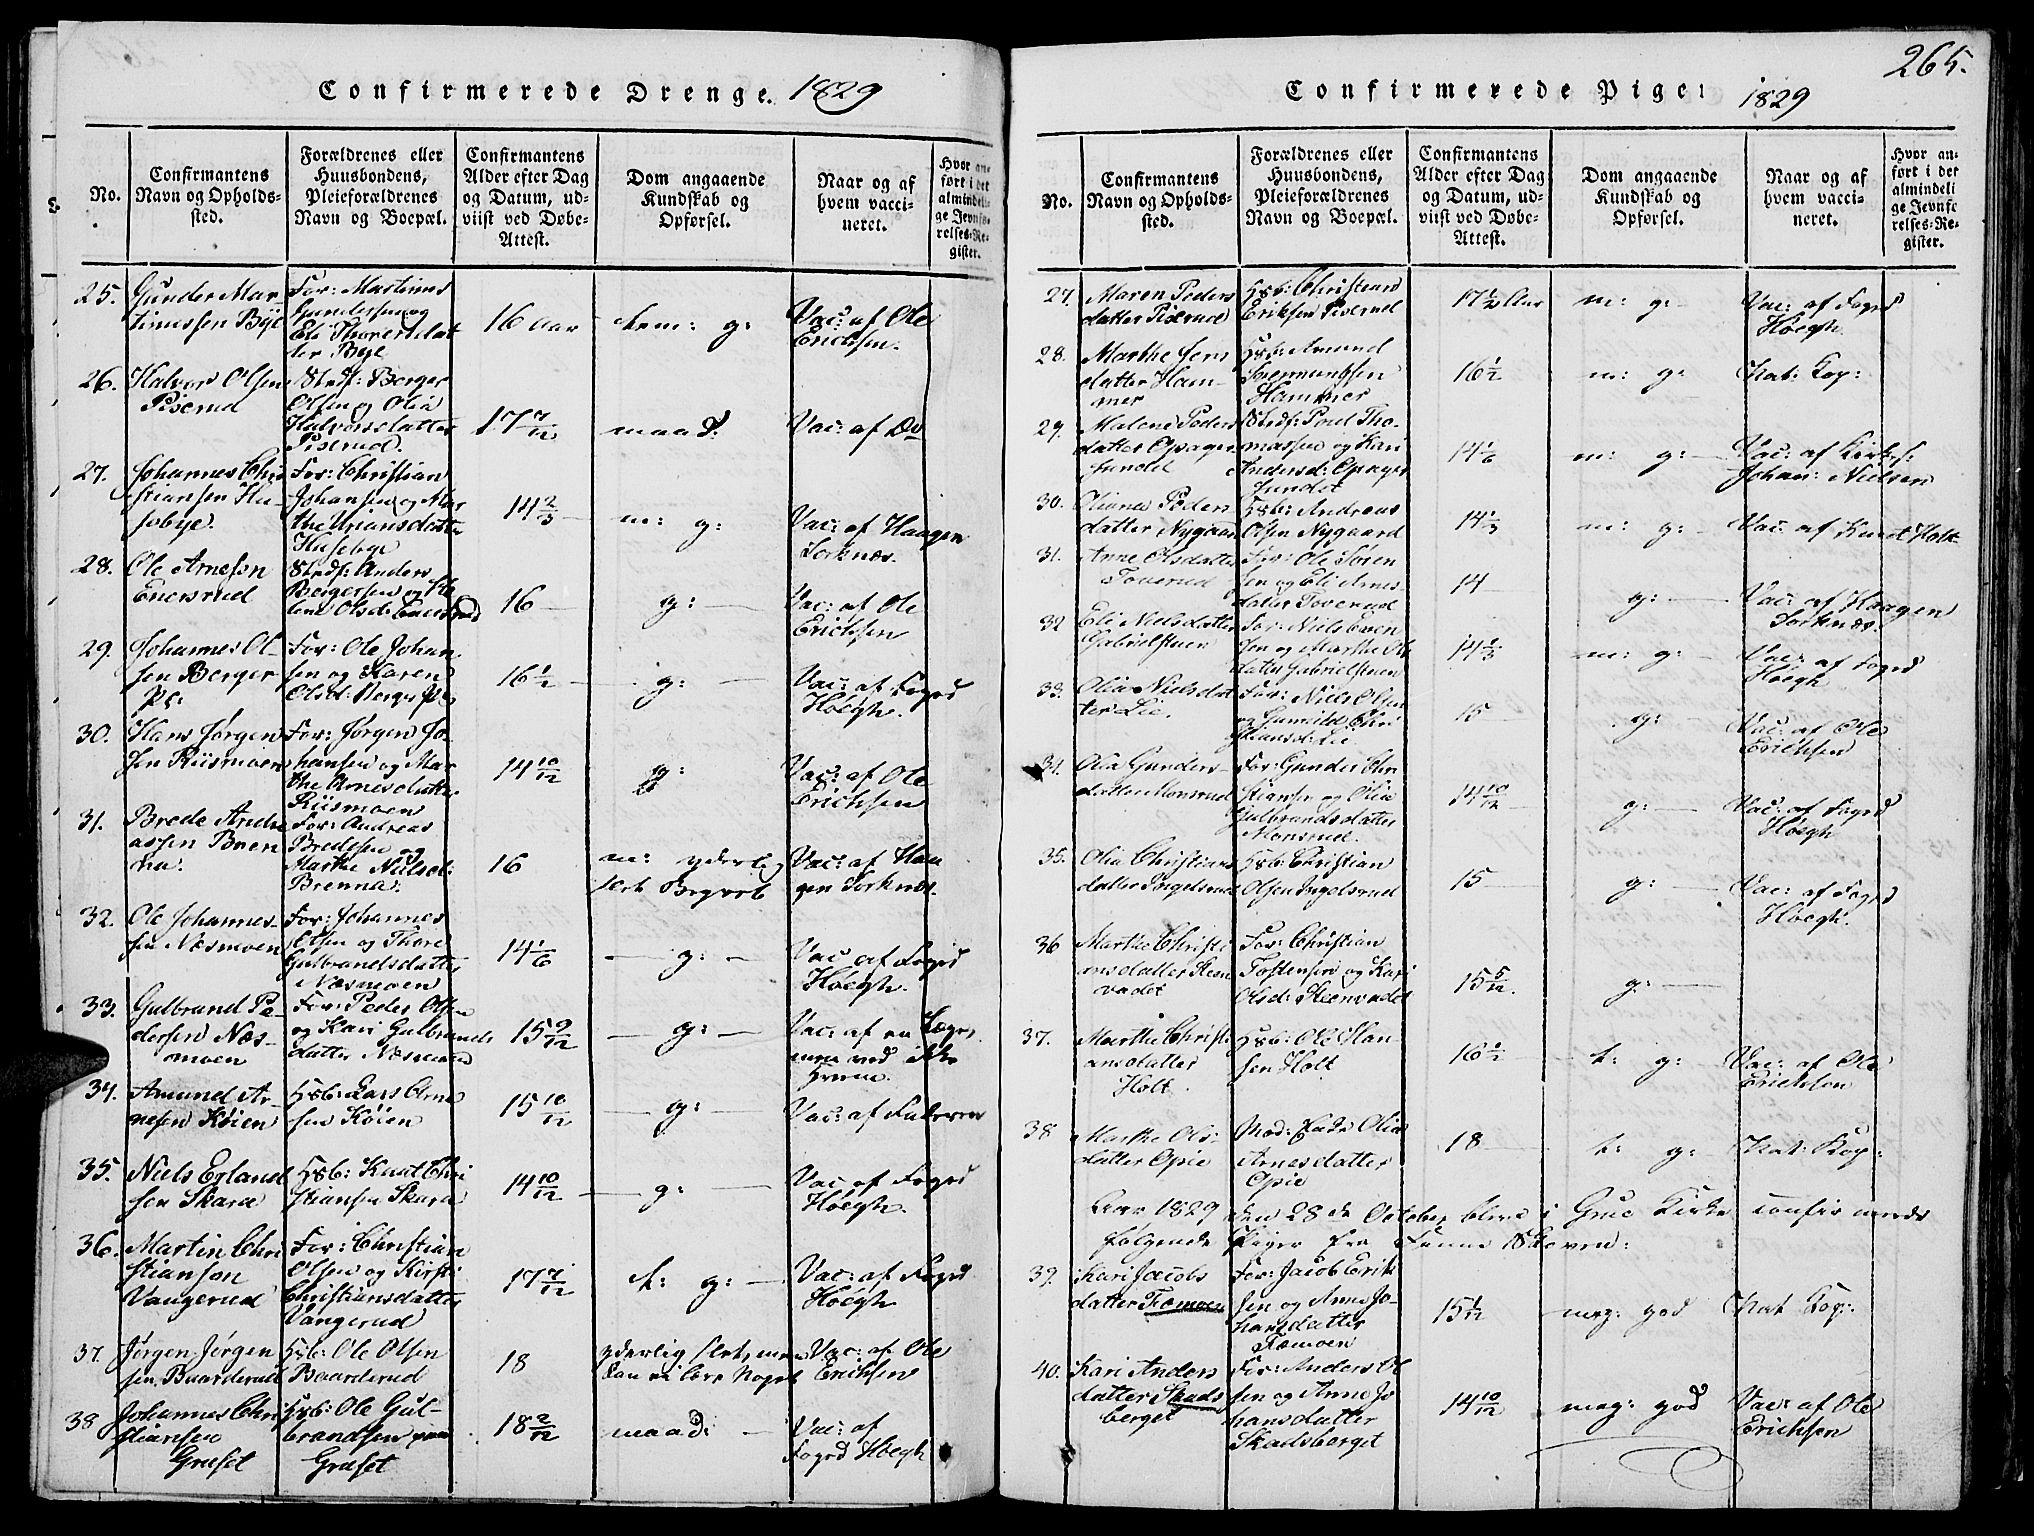 265.
Confirmerede Drenge. 1829
No.
Confirmantens
Navn og Opholds-
sted.
Forældrenes eller
Huusbondens,
Pleieforældrenes
Navn og Boepæl.
Confirmantens
Alder efter Dag
og Datum, ud-
viist ved Døbe-
Attest.
Dom angaaende
Kundskab og
Opførsel.
Naar og af
hvem vacci-
neret.
Hvor an-
ført i det
almindeli-
ge Jevnfø-
relses-Re-
gister.
25. Gunder Mar-
tinussen Bye
For: Martinus
Gundersen og
Eli Thorersdat
ter Bye
16 Aar
tem: g:
Vac: af Ole
Erichsen.
26. Halvor Olsen
Piserud
Stedf: Berger
Olsen og Olia
Halvorsdatter
Piserud.
17 7/12
maad:
Vac: af Do
27. Johannes Chri
stiansen Hu-
sebye.
For: Christian
Johansen og Mar
the Uriansdatter
Husebye
14 2/3
m: g:
Vac: af Haagen
Sorknæs.
28. Ole Arnesen
Enersrud
Stedf: Anders
Bergersen og
16
g:
Vac: af Ole
Erichsen
29. Johannes Ol-
sen Berger
Pl:
For: Ole Johan
sen og Karen
Olsd: Berger Pl:
16 1/2
g:
Vac: af Foged
Høegh.
30. Hans Jørgen
sen Riismoen
For: Jørgen Jo-
hansen og Mar
the Arnesdatter
Riismoen
14 10/12
g:
Vac: af Ole
Erichsen
31. Brede Andre
assen Bren
na.
For: Andreas
Bredesen og
Marthe Nielsd:
Brenna.
16
m: yderlig
slet Begreb
Vac: af Haa
gen Sorknæs.
32. Ole Johannes-
sen Næsmoen
For: Johannes
Olsen og Thore
Gulbrandsdatter
Næsmoen
14 1/6
g:
Vac: af Foged
Høegh.
33. Gulbrand Pe-
dersen Næs-
moen
For: Peder Olsen
og Kari Gulbrands
datter Næsmoen
15 9/12
g:
Vac: af en Læge,
men ved ikke
hvem.
34. Amund Ar-
nesen Køien
Hsb: Lars Arne
sen Køien
15 10/12
g:
Vac: af Faderen
35. Niels Erland
sen Skara
Hsb: Knut Chri
stiansen Skara
14 10/12
g:
Vac: af Foged
Høegh.
36. Martin Chri
stiansen
Vangerud
For: Christian
Olsen og Kirsti
Christiansdatter
Vangerud
17 7/12
t: g:
Vac: af Foged
Høegh
37. Jørgen Jørgen
sen Baarderud
Hsb: Ole Olsen
Baarderud
18
yderlig slet, men
kan ei lære Noget
Vac: af Ole
Erichsen
38 Johannes Chri
stiansen
Græset
Hsb: Ole Gul-
brandsen
Græset
18 2/12
maad:
Vac: af
Foged Høegh
Confirmerede Piger 1829
No.
Confirmantens
Navn og Opholds-
sted.
Forældrenes eller
Huusbondens,
Pleieforældrenes
Navn og Boepæl.
Confirmantens
Alder efter Dag
og Datum, ud-
viist ved Døbe-
Attest.
Dom angaaende
Kundskab og
Opførsel.
Naar og af
hvem vacci-
neret.
Hvor an-
ført i det
almindeli-
ge Jevnfø-
relses-Re-
gister.
27. Maren Peders
datter Piserud
Hsb: Christian
Eriksen Piserud
17 1/2 Aar
m: g:
Vac: af Foged
Høegh.
28. Marthe Jens
datter Ham-
mer
Hsb: Amund
Hammer
16 1/2
m: g:
Nat: Kop:
29. Malene Peders
datter Opager
sundet
Stedf: Poul Tho-
massen og Kari
Andersd: Opager
sundet
14 1/6
m: g:
Vac: af Kirkes:
Johan: Nielsen
30. Oliana Peders
datter Nygaard
Hsb: Andreas
Olsen Nygaard
14 1/3
m: g:
Vac: af Knut Holt
31. Anne Olsdatter
Toverud
For: Ole Soren
sen og Eli Arnes-
datter Toverud
14
g:
Vac: af Haagen
Sorknæs.
32 Eli Nielsdatter
Gabrielstuen
For: Niels Even
sen og Marthe Ols
datter Gabrielstuen
14 1/3
m: g:
Vac: af Foged
Høegh
33. Olia Nielsdat
ter Lie.
For: Niels Olsen
og Gunild Chri
stiansd: Lie
15
g:
Vac: af Ole
Erichsen
34. Olia Gunders-
datter Monsrud
For: Gunder Chri
stiansen og Olia
Gulbrandsdatter
Monsrud.
14 10/12
g:
Vac: af Foged
Høegh
35. Olia Christians
datter Ingelsrud
Hsb: Christian
Olsen Ingelsrud
15
g:
Vac: af Foged
Høegh.
36 Marthe Christi
ansdatter Steen
vadet
For: Christian
Tostensen og Kari
Olsd: Steenvadet
15 5/12.
g:
37. Marthe Christi
ansdatter
Holt.
Hsb: Ole Han-
sen Holt
16 1/2
t: g:
Vac: af Ole
Erichsen
38 Marthe Ols-
datter Opsie
Mod: Enke Olia
Arnesdatter
Opsie
18
t: g:
Nat: Kop:
Aar 1829 den 28de October blevne i Grue Kirke confirmerede
følgende Piger fra Finne Skoven:
39. Kari Jacobs
datter Fæmoen
For: Jacob Erik
sen og Anne Jo-
hansdatter
Fæmoen
15 1/12
meg: god
Nat: Kop:
40. Kari Anders
datter Skads
berget
For: Anders Ol
sen og Anne Jo
hansdatter
Skadsberget
14 10/12
meg: god
Vac: af Ole
Erichsen